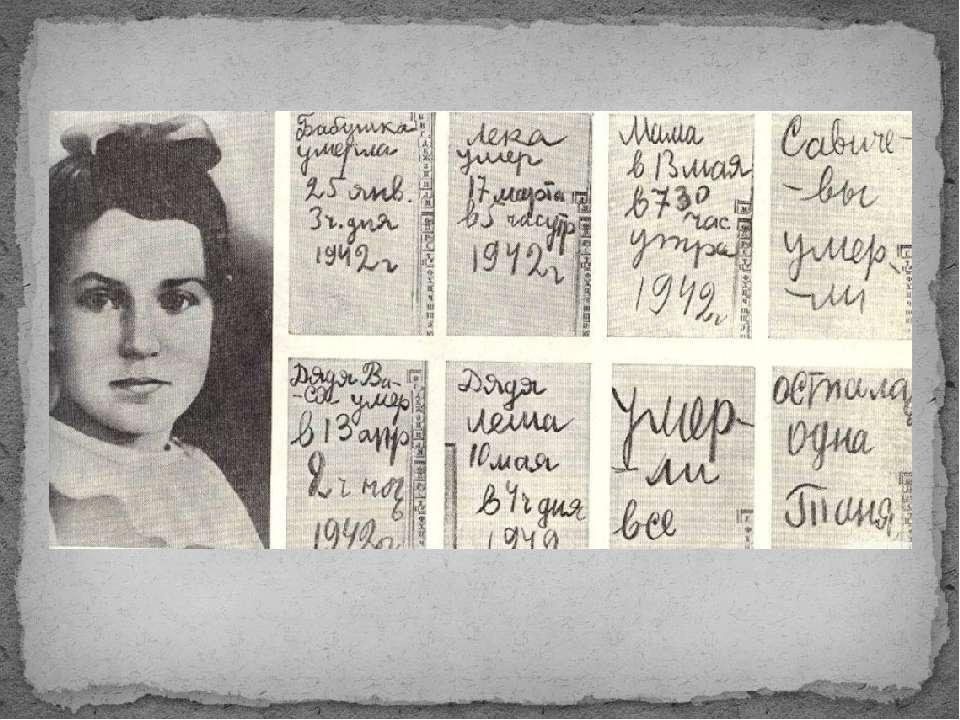 Бабушка
умерла
25 янв.
3 ч. дня
1942 г
Лека
умер
17 марта
в 5 час утр
1942 г
Мама
в 13 мая
в 730
час
утра
1942 г
Савиче-
-вы
умер-
-ли
Дядя Ва-
-ся умер
в 13 апр
2 ч ноч
1942 г
Дядя
Леша
10 мая
в 4 ч дня
1942
Умер-
-ли
все
Осталась
одна
Таня